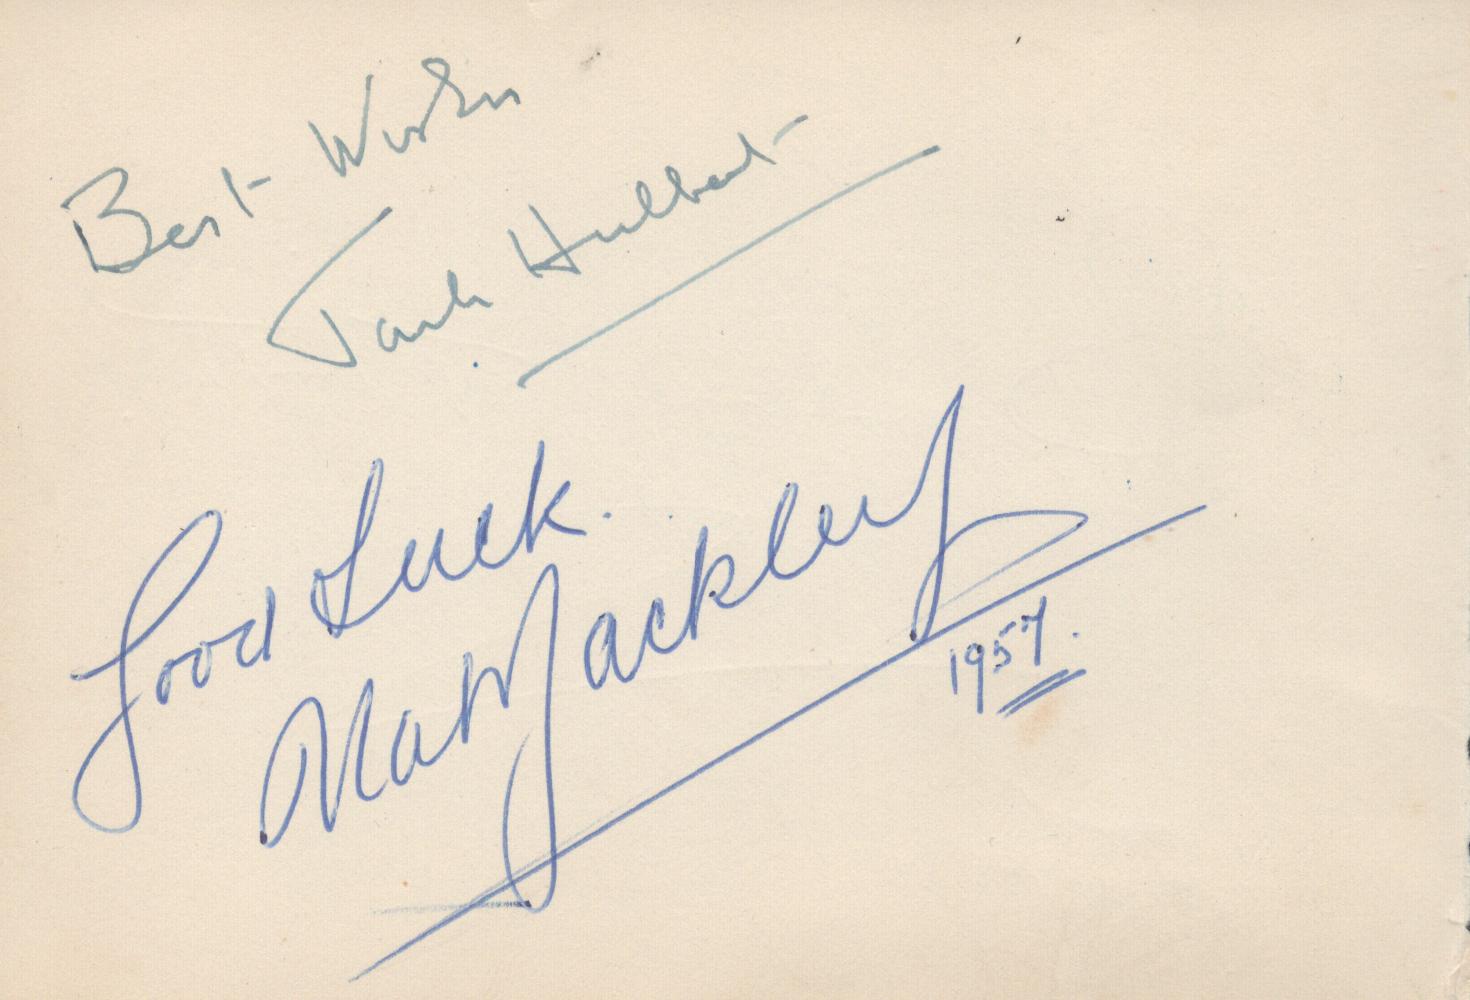 Best Wishes
Jack Hulbert
Good Luck.
Nat Jackley
1957.